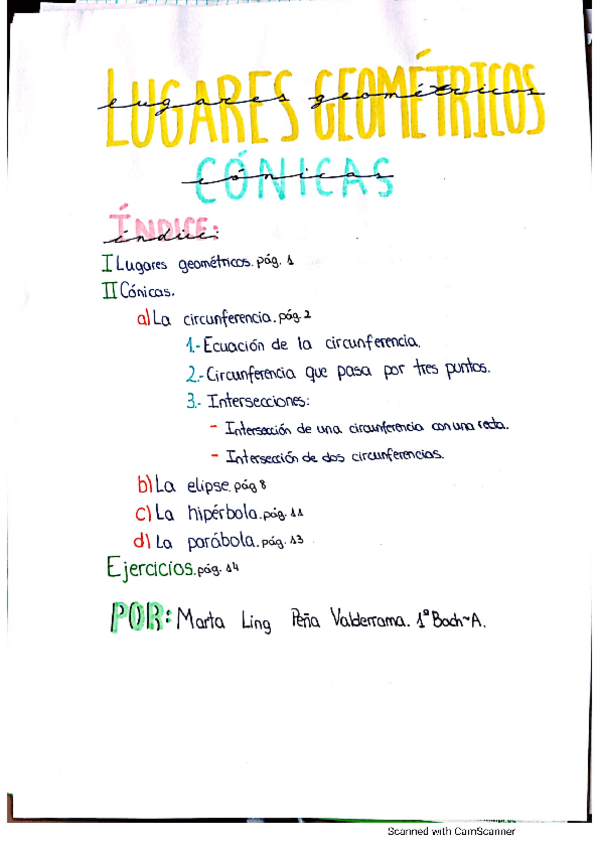 LUGARES GEOMÉTRICOS
lugares geométricos
CÓNICAS
cónicas
ÍNDICE:
índice:
I Lugares geométricos. pág. 1
II Cónicas.
a) La circunferencia. pág. 2
1.- Ecuación de la circunferencia.
2.- Circunferencia que pasa por tres puntos.
3.- Intersecciones:
- Intersección de una circunferencia con una recta.
- Intersección de dos circunferencias.
b) La elipse. pág 8
c) La hipérbola. pág. 11
d) La parábola. pág. 13
Ejercicios. pág. 14
POR: Marta Ling Peña Valderrama. 1º Bach~A.
Scanned with CamScanner